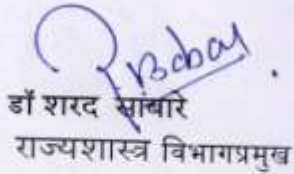 डॉ शरद सांबारे
राज्यशास्त्र विभागप्रमुख